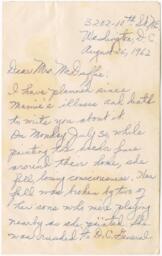 3202-10th St. N.E.
Washington, D.C.
August 26, 1962
Dear Mrs. McDuffie,
I have planned since
Mamie's illness and death
to write you about it
On Monday July 30, while
painting her
around their home, she
fell, losing consciousness. Her
fall was broken by two of
her sons who were playing
nearby as she painted. She
was rushed to D.C. General